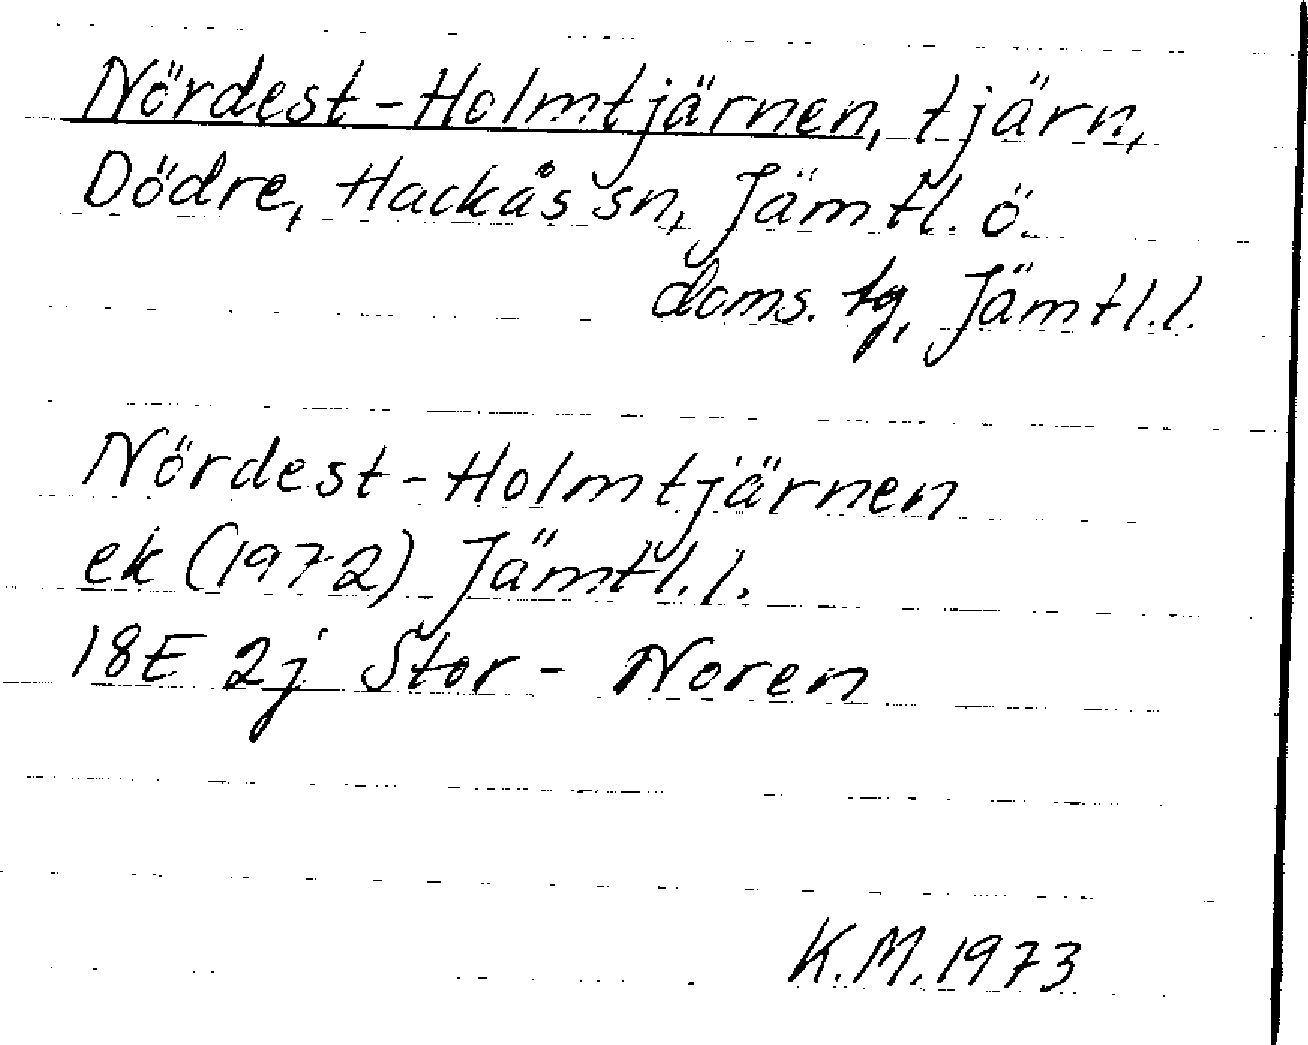 Nördest-Holmtjärnen, tjärn,
Dödre, Hackås sn, Jämtl. ö.
doms. tg, Jämtl.l.
Nördest-Holmtjärnen
ek (1972) Jämtl.l.
18E 2j Stor-Noren
K.M. 1973